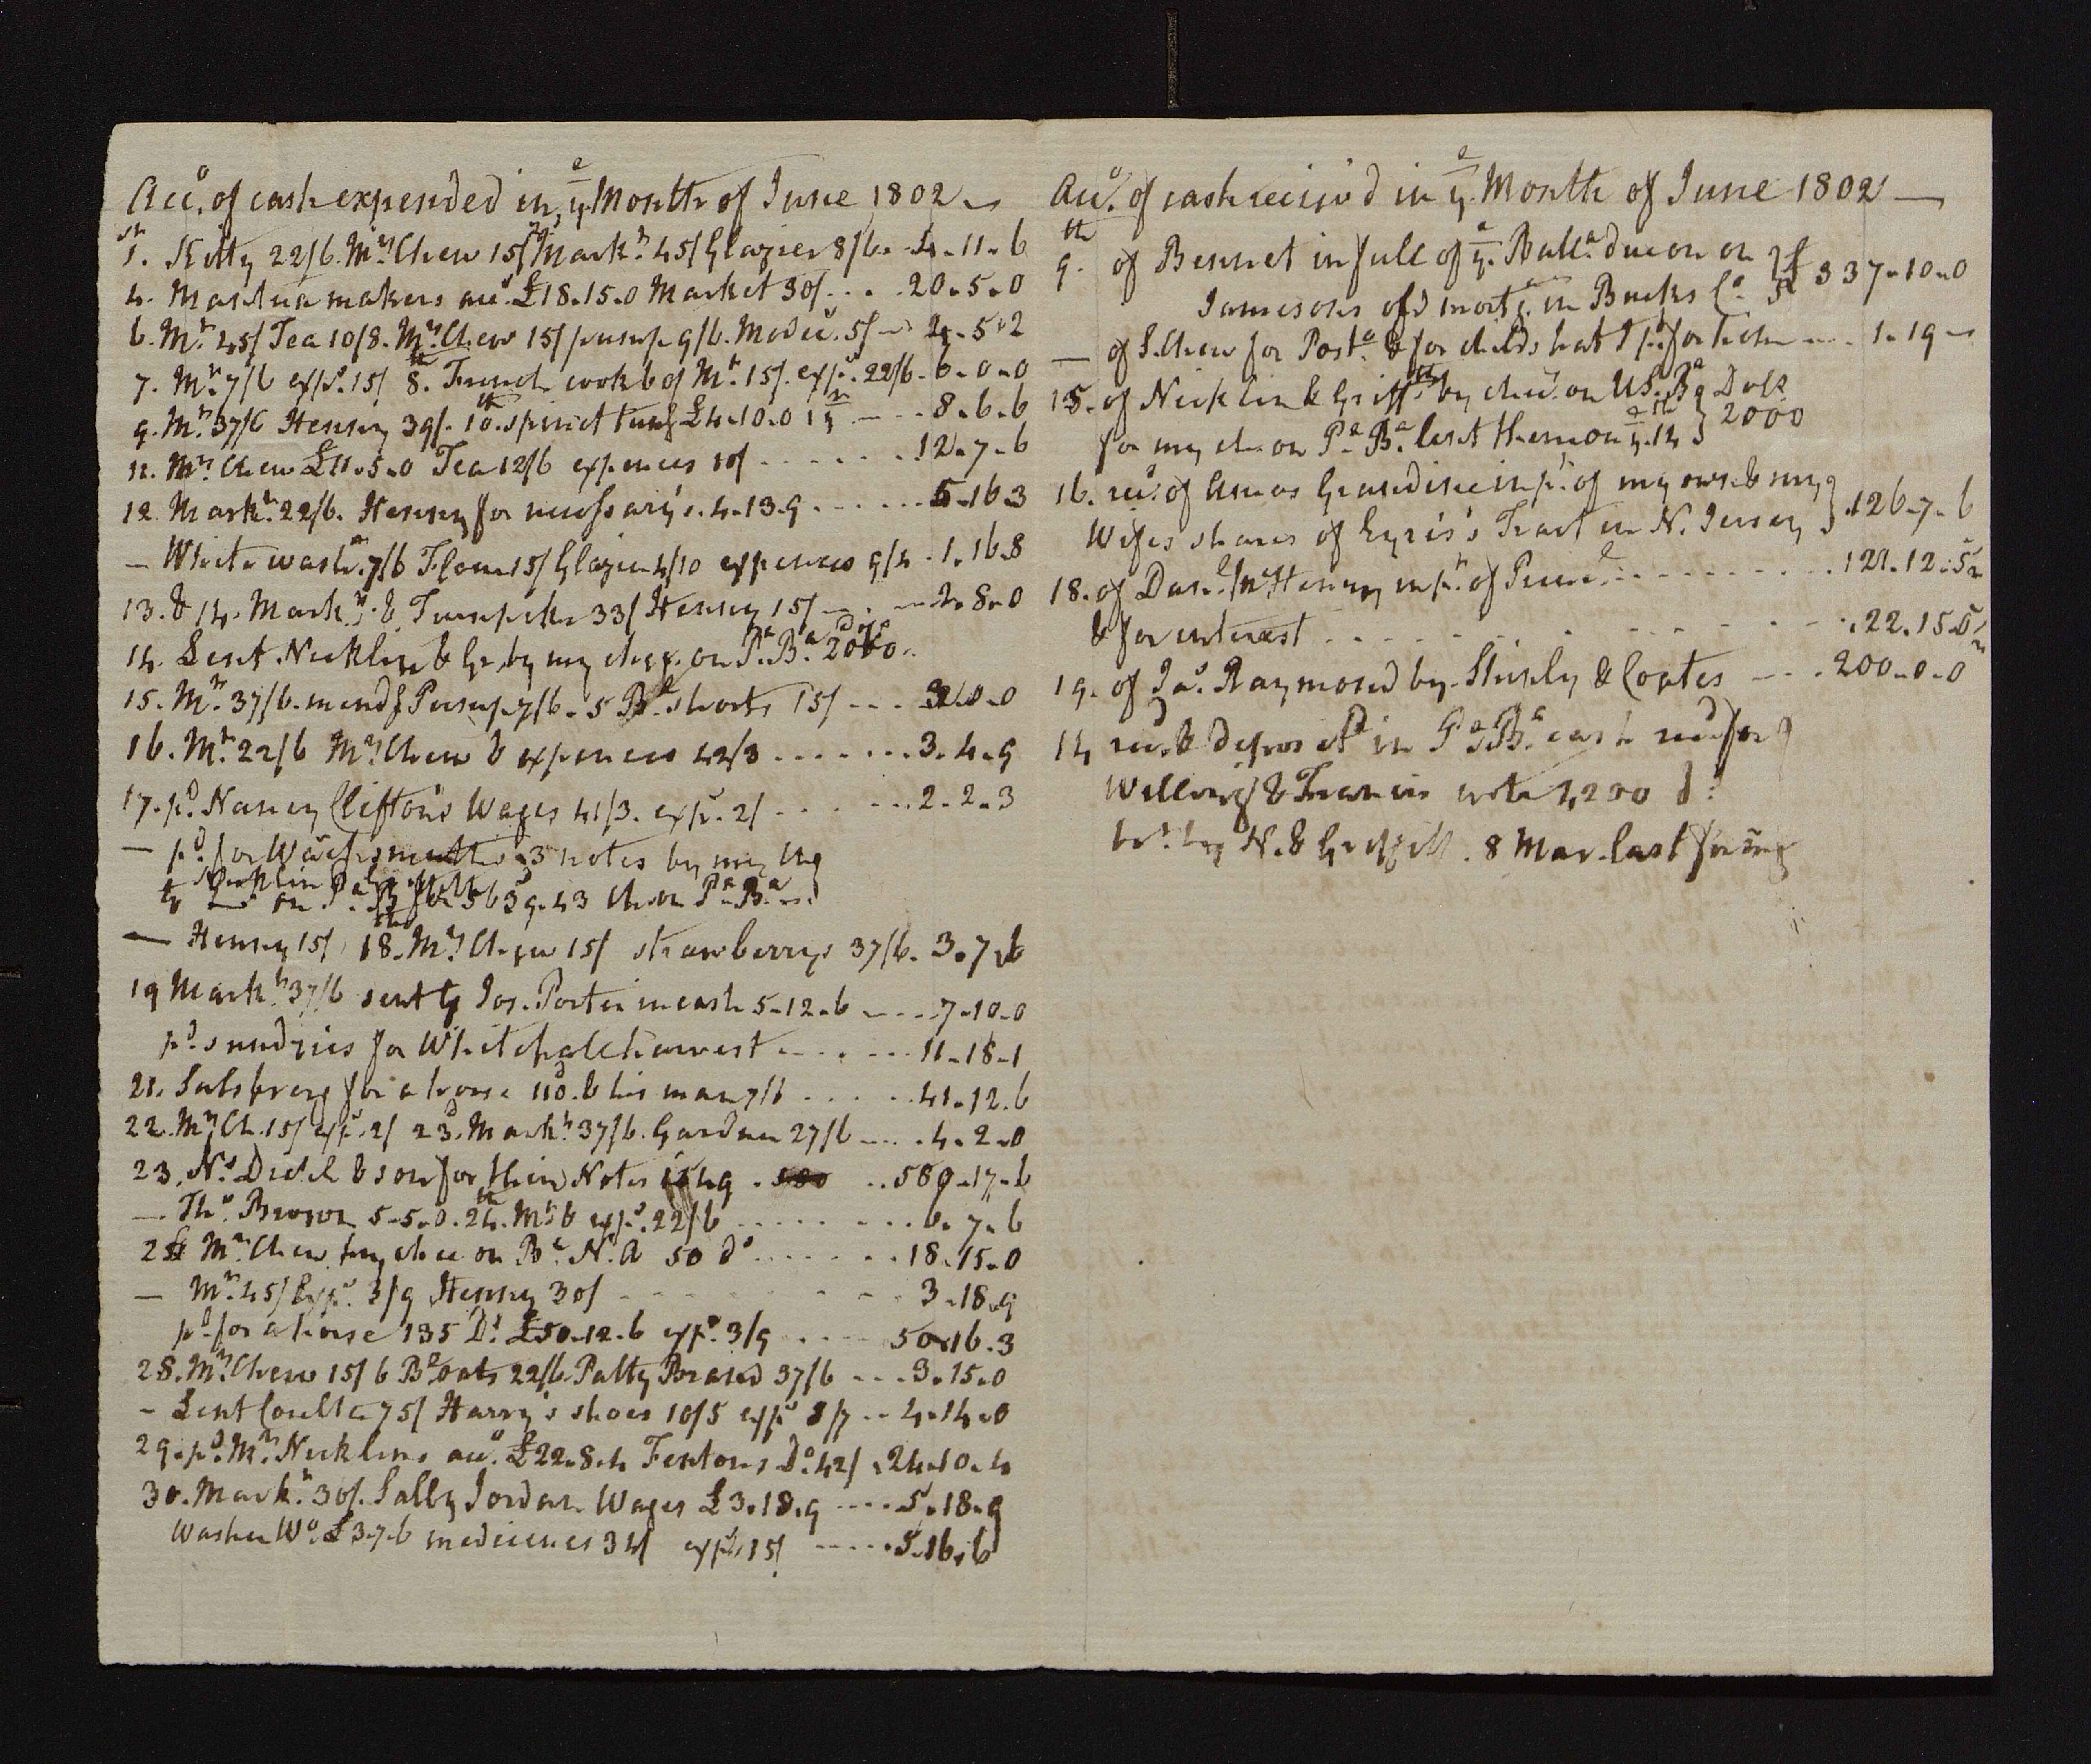 Acco. of cash expended in ye. Month of June 1802
1st. Kitty 22/6. Mrs. Chew 15/ Markt. 45/ Glazier 8/6. 4.11.6
4. Mantua makers acco. £18.15.0 Market 30/ . . . 20.5.0
6. Mt. 45/ Tea 10/8. Mrs. Chew 15/ pump 9/6. Medic. 5/ 4.5.2
7. Mt. 7/6 exps. 15/ 8th. French cook 60/ Mt. 15/. exps. 22/6. 6.0.0
9. Mt. 37/6 Henny 39/. 10th. spinet tung £4.10.0 8.6.6
11. Mrs. Chew £11.5.0 Tea 12/6 expences 10/ . . . . . . 12.7.6
12. Markt. 22/6. Henny for necessary's. 4.13.9 . . . . . . 5.16.3
— White washr. 7/6 Flour 15/ Glazier 4/10 expences 9/4 . 1.16.8
13. & 14. Markt. & Turnpike 33/ Henny 15/ — . — 2.8.0
14. Lent Nicklin & Gr. by my cheq. on Pa. Ba. 2000 Drs.
15. Mt. 37/6. mendg Pump 7/6. 5 Bs. shorts 15/ . . . 3.0.0
16. Mt. 22/6 Mrs. Chew & expences 42/3 . . . . . . . 3.4.9
17. pd. Nancy Clifton's Wages 41/3. exps. 2/ . . . . . . 2.2.3
— pd. for 3 notes by my
Nicklin
on Pa. 5639.43 Ch. on Pa. Ba.
— Henny 15/ 18th. Mrs. Chew 15/ strawberrys 37/6. 3.7.6
19 Markt. 37/6 sent by Jos. Porter in cash 5.12.6 . . . . 7.10.0
pd. sundries for Whitehall harvest . . . . . . 11.18.1
21. Salsberg for a horse 110. & his man 7/6 . . . . . 41.12.6
22. Mrs. Ch. 15/ exps. 2/ 23. Markt. 37/6. Gardner 27/6 . . . . 4.2.0
23. Ns. Diehl & son for their Notes 1549 . . . 580.17.6
— Ths. Brown 5.5.0. 24th. Mt. & exps. 22/6 . . . . . . . . 6.7.6
25 Mrs. Chew by chec on Bk. N. A 50 ds . . . . . . . 18.15.0
— Mt. 45/ Exps. 3/9 Henny 30/ . . . . . . . . . 3.18.9
pd. for a horse 135 Ds. £50.12.6 exps. 3/9 . . . . 50.16.3
28. Mrs. Chew 15/ 6 Bs. oats 22/6. Patty Brand 37/6 . . . 3.15.0
— Lent Coulter 75/ Harry's shoes 10/5 exps 8/7 . . 4.14.0
29. pd. Mr. Nicklins acco. £22.8.4 Fentons Do. 42/ . 24.10.4
30. Markt. 30/. Sally Jordan Wages £3.18.9 . . . . 5.18.9
Washer Wo. £3.7.6 medicines 34/ exps. 15/ . . . . . 5.16.6
Acco. of cash receiv'd in ye. Month of June 1802 —
9th. of Bennet in full of ye. Balla. due on
Jamesons old mortg. in Bucks Co. £337.10.0
— of S. Chew for Posta. & for childs hat I pd. for him . . . 1.19
15. of Nicklin & Griffth by chec. on U.S. Ba Dolls
for my ch. on Pa. Ba. lent them on ye. 14th } 2000
16. recd. of Amos Grandine in pt. of my own & my
Wifes shares of Eyris's Tract in N. Jersey } 126.7.6
18. of Danl. McHenny in pt. of . . . . . . . . . . 121.12.5
& for interest . . . . . . . . . . . 22.15.
19. of Jas. Raymond by Shirely & Coates . . . 200.0.0
14 recd. & deposited in Pa. Ba. cash recd for
Willing & Francis note 4200 ds.
by N. & Griffith. 8 Mar. last for